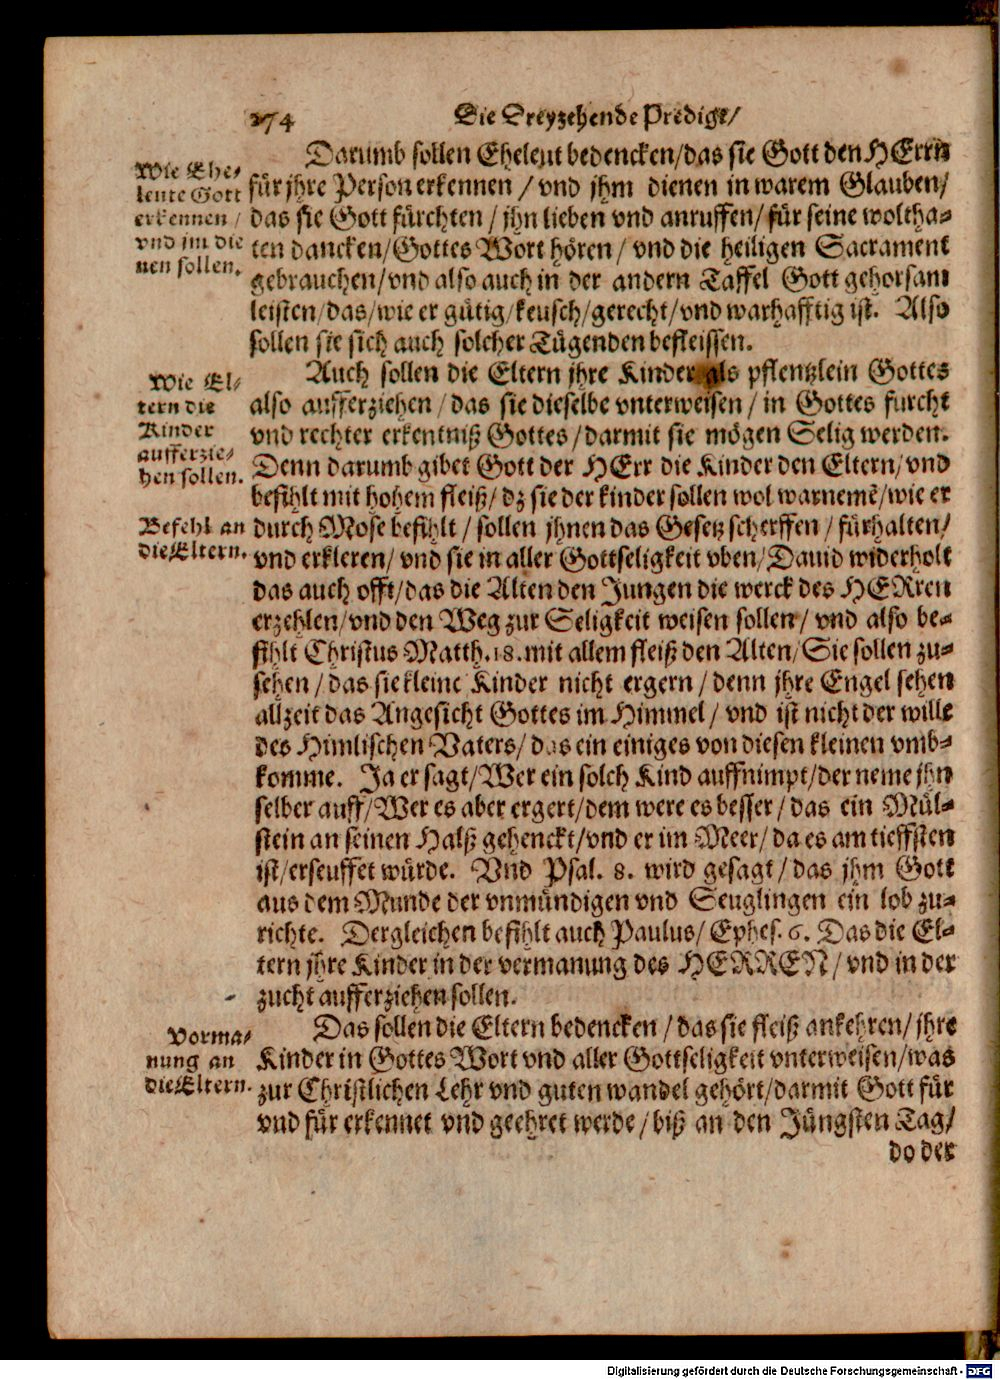 274 Die Dreyzehende Predigt/
Darumb sollen Eheleut bedencken/das sie Gott den HErrn
Wie Ehe-
leute Gott
erkennen/
vnd im die
nen sollen.
für jhre Person erkennen / vnd jhm dienen in warem Glauben/
das sie Gott fürchten / jhn lieben vnd anruffen/ für seine woltha-
ten dancken/Gottes Wort hören / vnd die heiligen Sacrament
gebrauchen/vnd also auch in der andern Taffel Gott gehorsam
leisten/das/wie er gütig/keusch/gerecht/vnd warhafftig ist. Also
sollen sie sich auch solcher Tügenden befleissen.
Wie El-
tern die
Kinder
aufferzie-
hen sollen.
Auch sollen die Eltern jhre Kinder als pflentzlein Gottes
also aufferziehen / das sie dieselbe vnterweisen / in Gottes furcht
vnd rechter erkentniß Gottes / darmit sie mögen Selig werden.
Denn darumb gibet Gott der HErr die Kinder den Eltern/ vnd
befihlt mit hohem fleiß/ dz sie der kinder sollen wol warnemẽ/wie er
Befehl an
die Eltern.
durch Mose befihlt / sollen jhnen das Gesetz scherffen / fürhalten/
vnd erkleren/ vnd sie in aller Gottseligkeit vben/ Dauid widerholt
das auch offt/das die Alten den Jungen die werck des HERren
erzehlen/vnd den Weg zur Seligkeit weisen sollen/ vnd also be-
fihlt Christus Matth. 18. mit allem fleiß den Alten/ Sie sollen zu-
sehen / das sie kleine Kinder nicht ergern / denn jhre Engel sehen
allzeit das Angesicht Gottes im Himmel / vnd ist nicht der wille
des Himlischen Vaters/ das ein einiges von diesen kleinen vmb-
komme. Ja er sagt/Wer ein solch Kind auffnimpt/der neme jhn
selber auff/Wer es aber ergert/dem were es besser / das ein Mül-
stein an seinen Halß gehenckt/vnd er im Meer/ da es am tieffsten
ist/erseuffet würde. Vnd Psal. 8. wird gesagt / das jhm Gott
aus dem Munde der vnmündigen vnd Seuglingen ein lob zu-
richte. Dergleichen befihlt auch Paulus/ Ephes. 6. Das die El-
tern jhre Kinder in der vermanung des HERREN/ vnd in der
zucht aufferziehen sollen.
Vorma-
nung an
die Eltern.
Das sollen die Eltern bedencken / das sie fleiß ankehren/ jhre
Kinder in Gottes Wort vnd aller Gottseligkeit vnterweisen/was
zur Christlichen Lehr vnd guten wandel gehört/darmit Gott für
vnd für erkennet vnd geehret werde / biß an den Jüngsten Tag/
do der
Digitalisierung gefördert durch die Deutsche Forschungsgemeinschaft - DFG